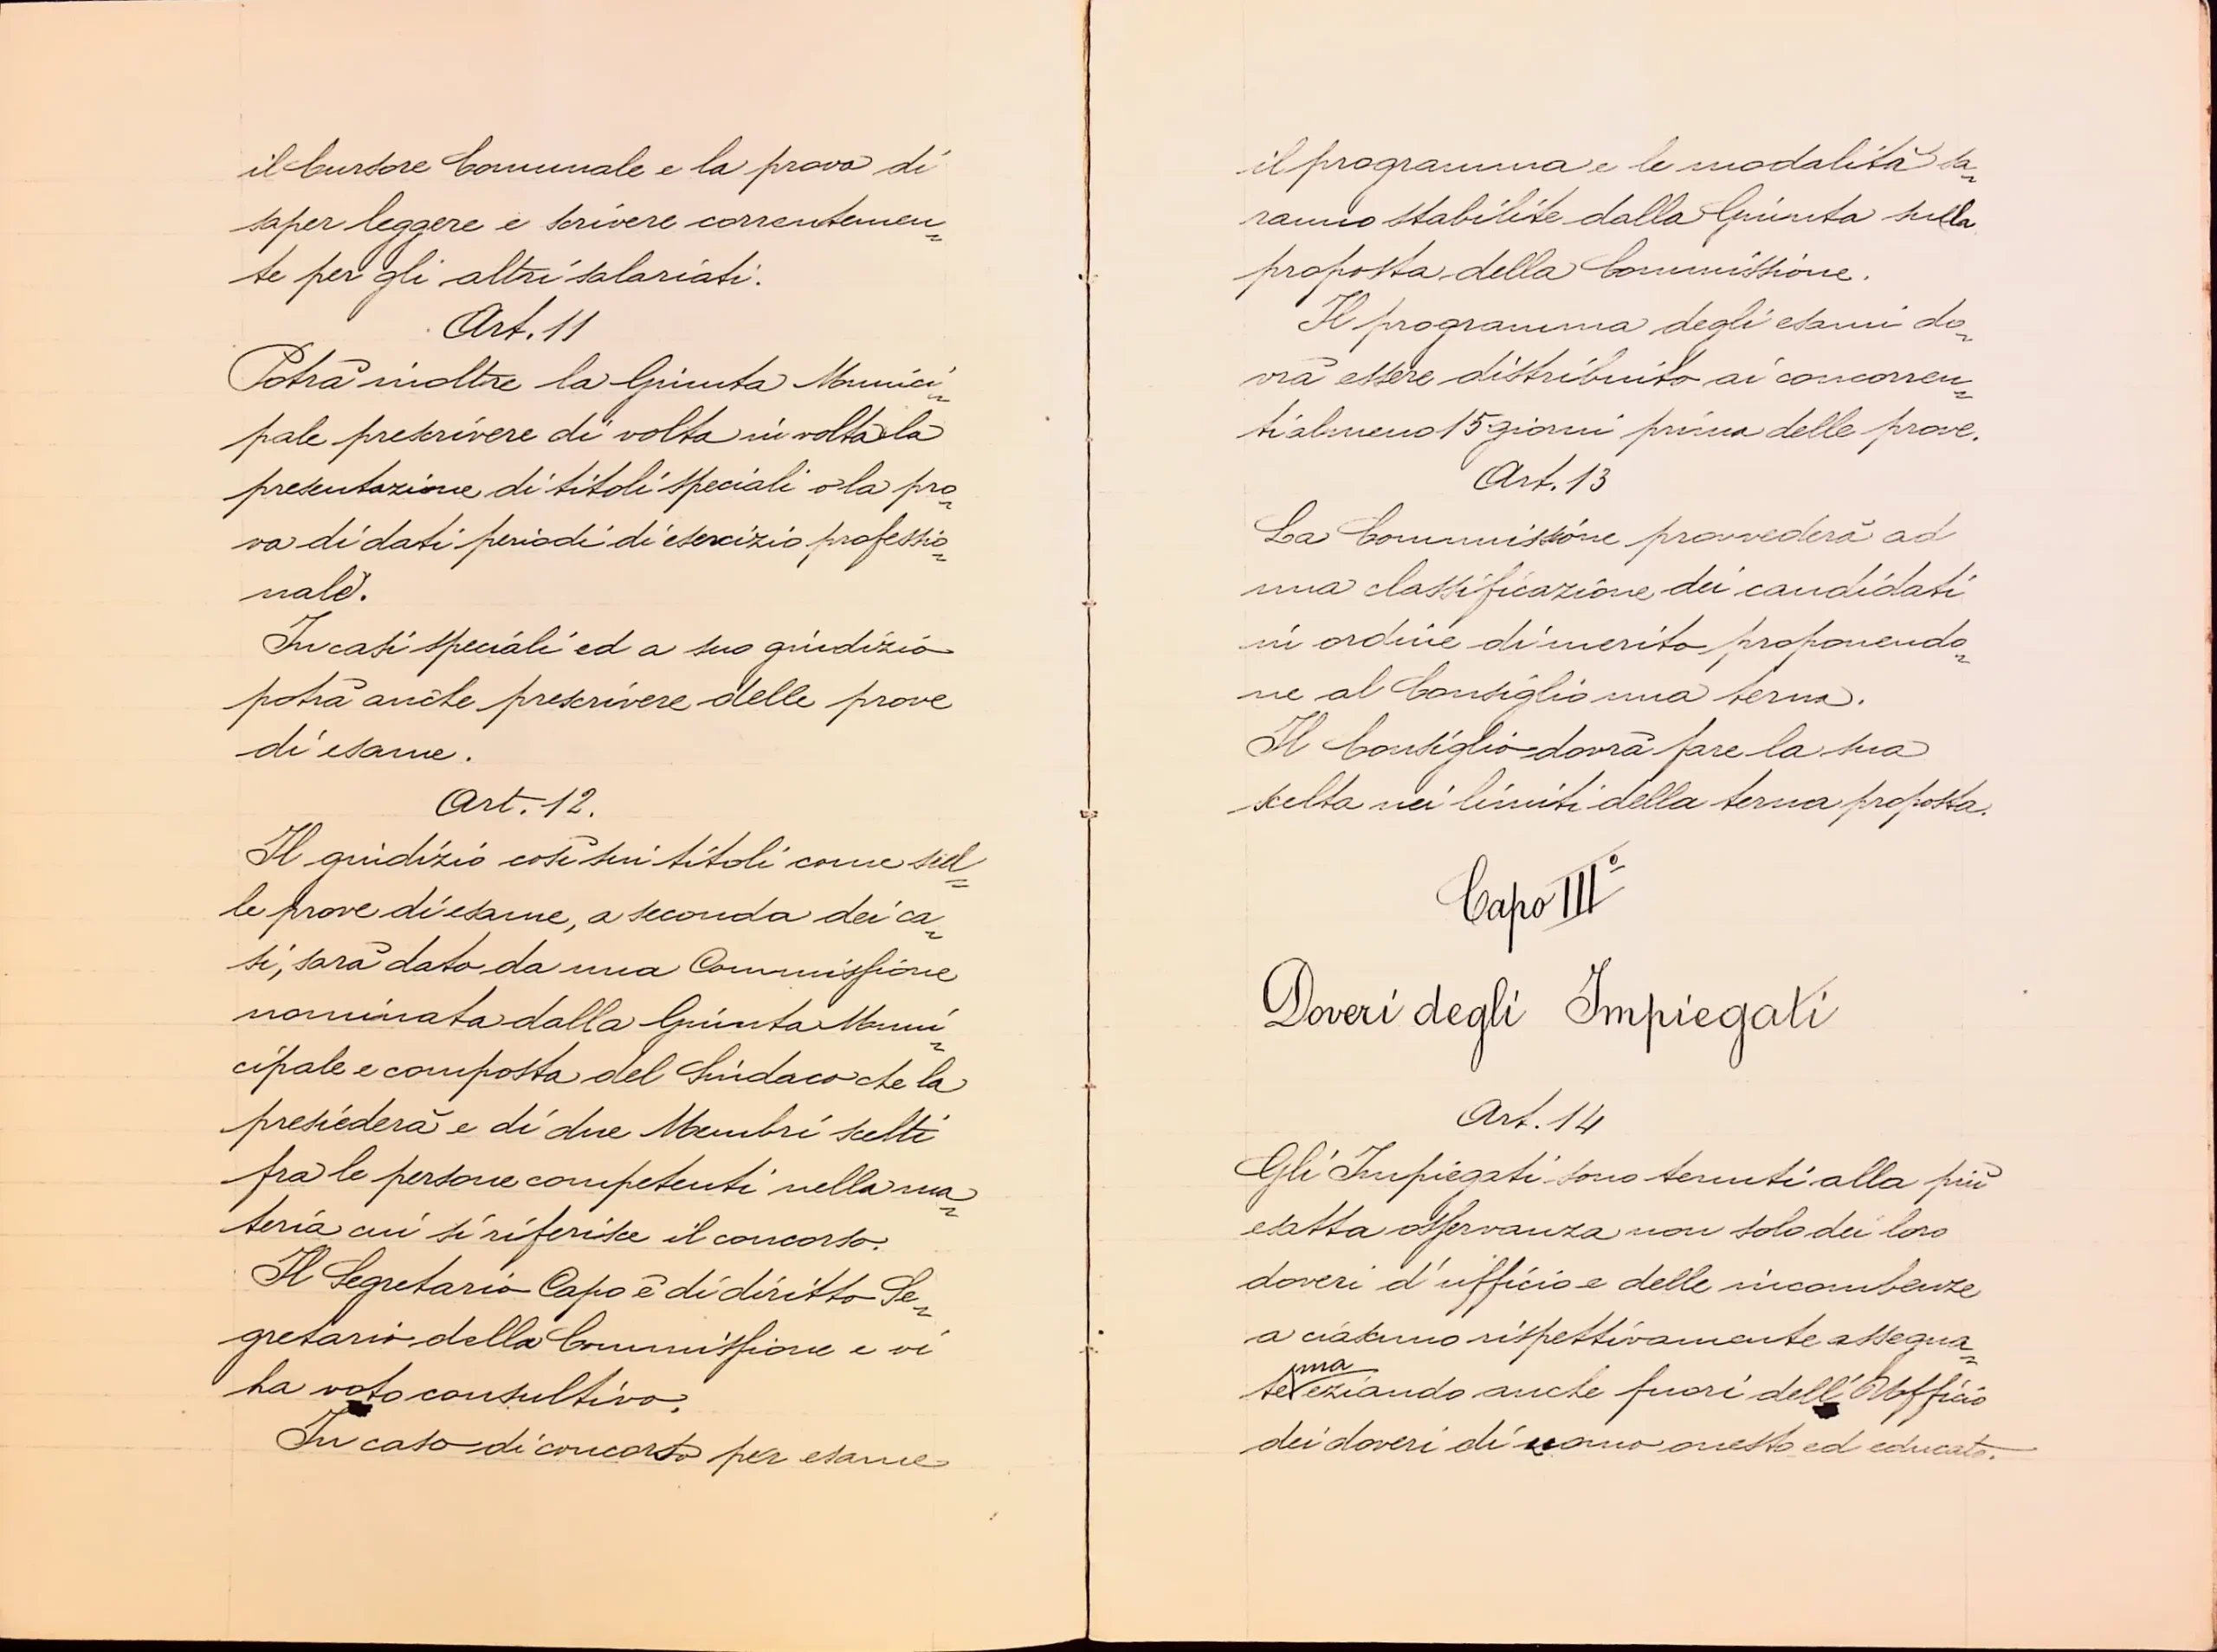 il Cursore Comunale e la prova di
saper leggere e scrivere correntemen=
te per gli altri salariati.
Art. 11
Potrà inoltre la Giunta Munici=
pale prescrivere di volta in volta la
presentazione di titoli speciali o la pro=
va di dati periodi di esercizio professio=
nale.
In casi speciali ed a suo giudizio
potrà anche prescrivere delle prove
di esame.
Art. 12.
Il giudizio così sui titoli come sul=
le prove di esame, a seconda dei ca=
si, sarà dato da una Commissione
nominata dalla Giunta Muni=
cipale e composta del Sindaco che la
presiederà e di due Membri scelti
fra le persone competenti nella ma=
teria cui si riferisce il concorso.
Il Segretario Capo è di diritto Se=
gretario della Commissione e vi
ha voto consultivo.
In caso di concorso per esame
il programma e le modalità sa=
ranno stabilite dalla Giunta sulla
proposta della Commissione.
Il programma degli esami do=
vrà essere distribuito ai concorren=
ti almeno 15 giorni prima delle prove.
Art. 13
La Commissione provvederà ad
una classificazione dei candidati
in ordine di merito proponendo=
ne al Consiglio una terna.
Il Consiglio dovrà fare la sua
scelta nei limiti della terna proposta.
Capo III°
Doveri degli Impiegati
Art. 14
Gli Impiegati sono tenuti alla più
esatta osservanza non solo dei loro
doveri d'ufficio e delle incombenze
a ciascuno rispettivamente assegna=
ma
te eziando anche fuori dell'Ufficio
dei doveri di uomo onesto ed educato.